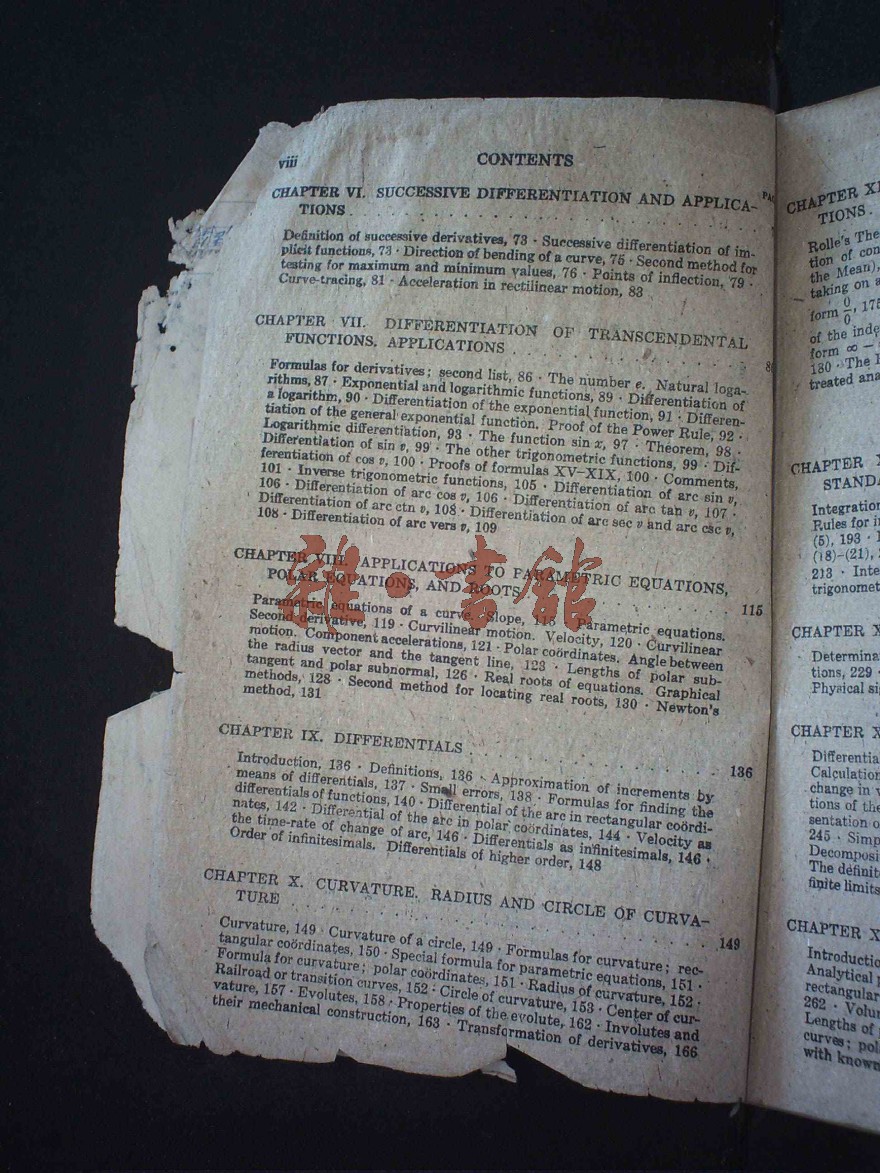 viii
CONTENTS
CHAPTER VI. SUCCESSIVE DIFFERENTIATION AND APPLICA-
TIONS
Definition of successive derivatives, 73 · Successive differentiation of im-
plicit functions, 73 · Direction of bending of a curve, 75 · Second method for
testing for maximum and minimum values, 76 · Points of inflection, 79 ·
Curve-tracing, 81 · Acceleration in rectilinear motion, 83
CHAPTER VII. DIFFERENTIATION OF TRANSCENDENTAL
FUNCTIONS, APPLICATIONS
Formulas for derivatives; second list, 86 · The number e. Natural loga-
rithms, 87 · Exponential and logarithmic functions, 89 · Differentiation of
a logarithm, 90 · Differentiation of the exponential function, 91 · Differen-
tiation of the general exponential function. Proof of the Power Rule, 92 ·
Logarithmic differentiation, 93 · The function sin x, 97 · Theorem, 98 ·
Differentiation of sin v, 99 · The other trigonometric functions, 99 · Dif-
ferentiation of cos v, 100 · Proofs of formulas XV–XIX, 100 · Comments,
101 · Inverse trigonometric functions, 105 · Differentiation of arc sin v,
106 · Differentiation of arc cos v, 106 · Differentiation of arc tan v, 107 ·
Differentiation of arc ctn v, 108 · Differentiation of arc sec v and arc csc v,
108 · Differentiation of arc vers v, 109
CHAPTER VIII. APPLICATIONS TO PARAMETRIC EQUATIONS,
POLAR EQUATIONS, AND ROOTS 115
Parametric equations of a curve. Slope, 115 · Parametric equations.
Second derivative, 119 · Curvilinear motion. Velocity, 120 · Curvilinear
motion. Component accelerations, 121 · Polar coördinates. Angle between
the radius vector and the tangent line, 123 · Lengths of polar sub-
tangent and polar subnormal, 126 · Real roots of equations. Graphical
methods, 128 · Second method for locating real roots, 130 · Newton's
method, 131
CHAPTER IX. DIFFERENTIALS 136
Introduction, 136 · Definitions, 136 · Approximation of increments by
means of differentials, 137 · Small errors, 138 · Formulas for finding the
differentials of functions, 140 · Differential of the arc in rectangular coördi-
nates, 142 · Differential of the arc in polar coördinates, 144 · Velocity as
the time-rate of change of arc, 146 · Differentials as infinitesimals, 146 ·
Order of infinitesimals. Differentials of higher order, 148
CHAPTER X. CURVATURE. RADIUS AND CIRCLE OF CURVA-
TURE 149
Curvature, 149 · Curvature of a circle, 149 · Formulas for curvature; rec-
tangular coördinates, 150 · Special formula for parametric equations, 151 ·
Formula for curvature; polar coördinates, 151 · Radius of curvature, 152 ·
Railroad or transition curves, 152 · Circle of curvature, 153 · Center of cur-
vature, 157 · Evolutes, 158 · Properties of the evolute, 162 · Involutes and
their mechanical construction, 163 · Transformation of derivatives, 166
CHAPTER XI
TIONS.
Rolle's The
tion of con
the Mean),
taking on a
form 0/0, 175
of the inde
form ∞ –
180 · The
treated ana
CHAPTER
STANDA
Integration
Rules for i
(5), 193 ·
(18)–(21),
213 · Inte
trigonomet
CHAPTER X
Determina
tions, 229 ·
Physical si
CHAPTER X
Differentia
Calculation
change in v
tions of the
sentation o
245 · Simp
Decomposi
The definit
finite limits
CHAPTER X
Introductio
Analytical
rectangular
262 · Volu
Lengths of
curves; pol
with known
雜·書館